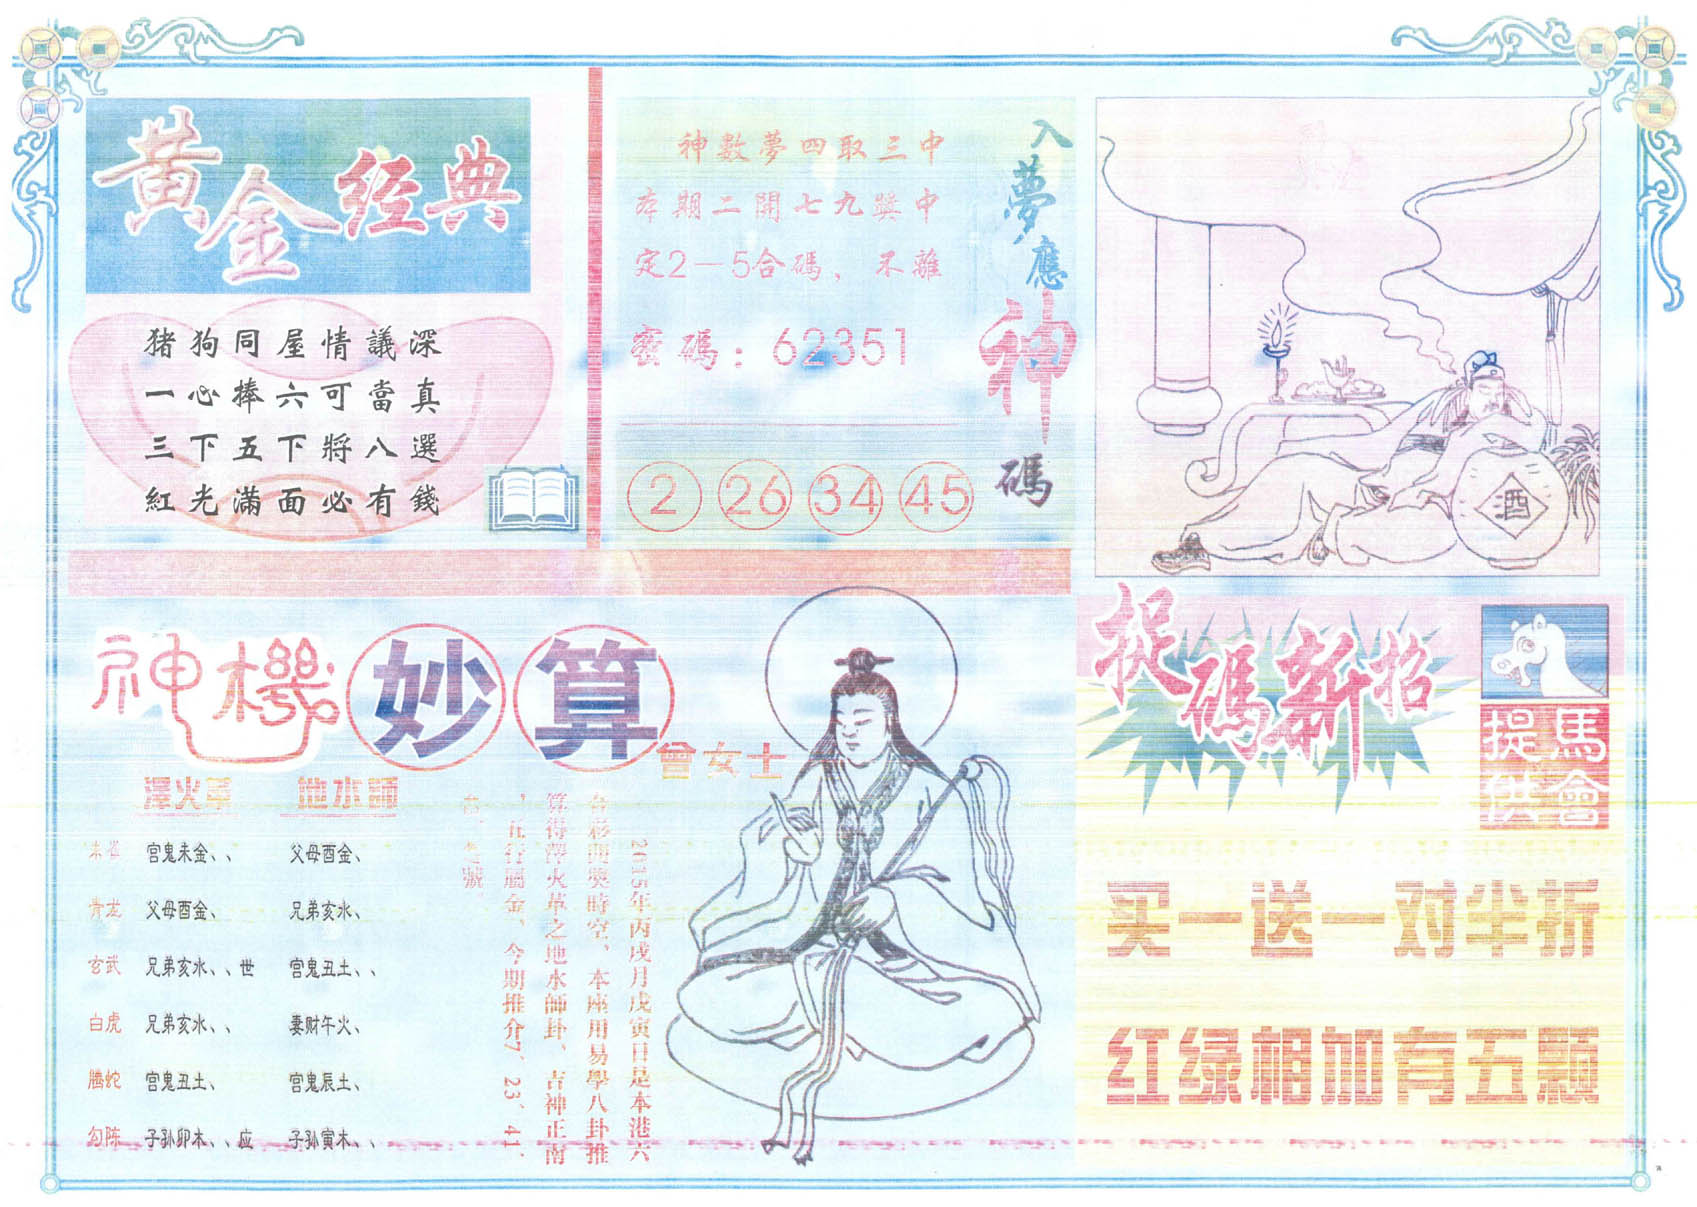 黃金经典
猪狗同屋情議深
一心捧六可當真
三下五下將八選
紅光滿面必有錢
神數夢四取三中
本期二開七九獎中
定2—5合碼、不離
密碼：62351
2 26 34 45
入夢應神碼
酒
神機妙算
曾女士
澤火革 地水師
朱雀 宫鬼未金、、 父母酉金、
青龙 父母酉金、 兄弟亥水、
玄武 兄弟亥水、、世 宫鬼丑土、、
白虎 兄弟亥水、、 妻财午火、
腾蛇 宫鬼丑土、 宫鬼辰土、
勾陈 子孙卯木、、应 子孙寅木、、
2015年丙戌月戊寅日是本港六
合彩両獎時空、本座用易學八卦推
算得澤火革之地水師卦、吉神正南
、五行屬金、今期推介7、23、41、
號
捉碼新招
捉馬
供會
买一送一对半折
红绿相加有五颗